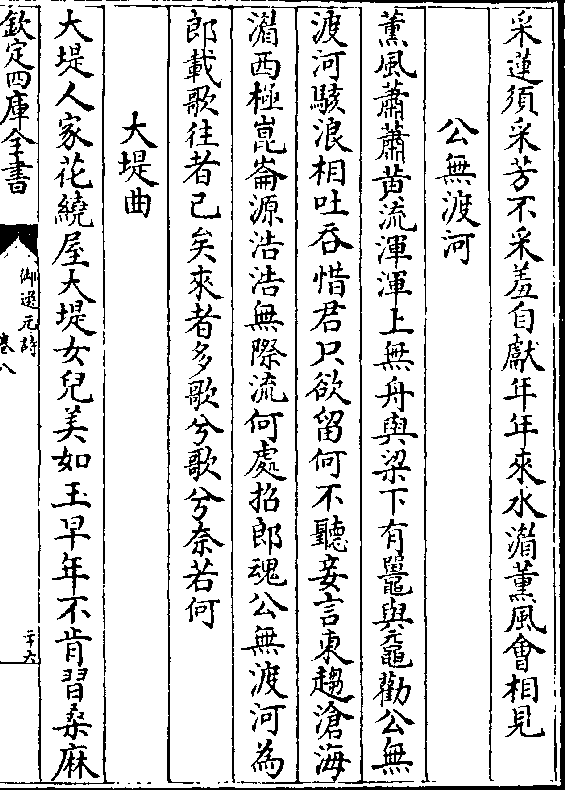 采蓮須采芳不采羞自獻年年來水湄薰風會相見
公無渡河
薰風蕭蕭黄流渾渾上無舟與梁下有鼉與黿勸公無
渡河駭浪相吐吞惜君只欲留何不聽妾言東趨滄海
湄西極崑崙源浩浩無際流何處招郎魂公無渡河為
郎載歌往者已矣來者多歌兮歌兮奈若何
大堤曲
大堤人家花繞屋大堤女兒美如玉早年不肯習桑麻
欽定四庫全書
御選元詩
卷八
二十六